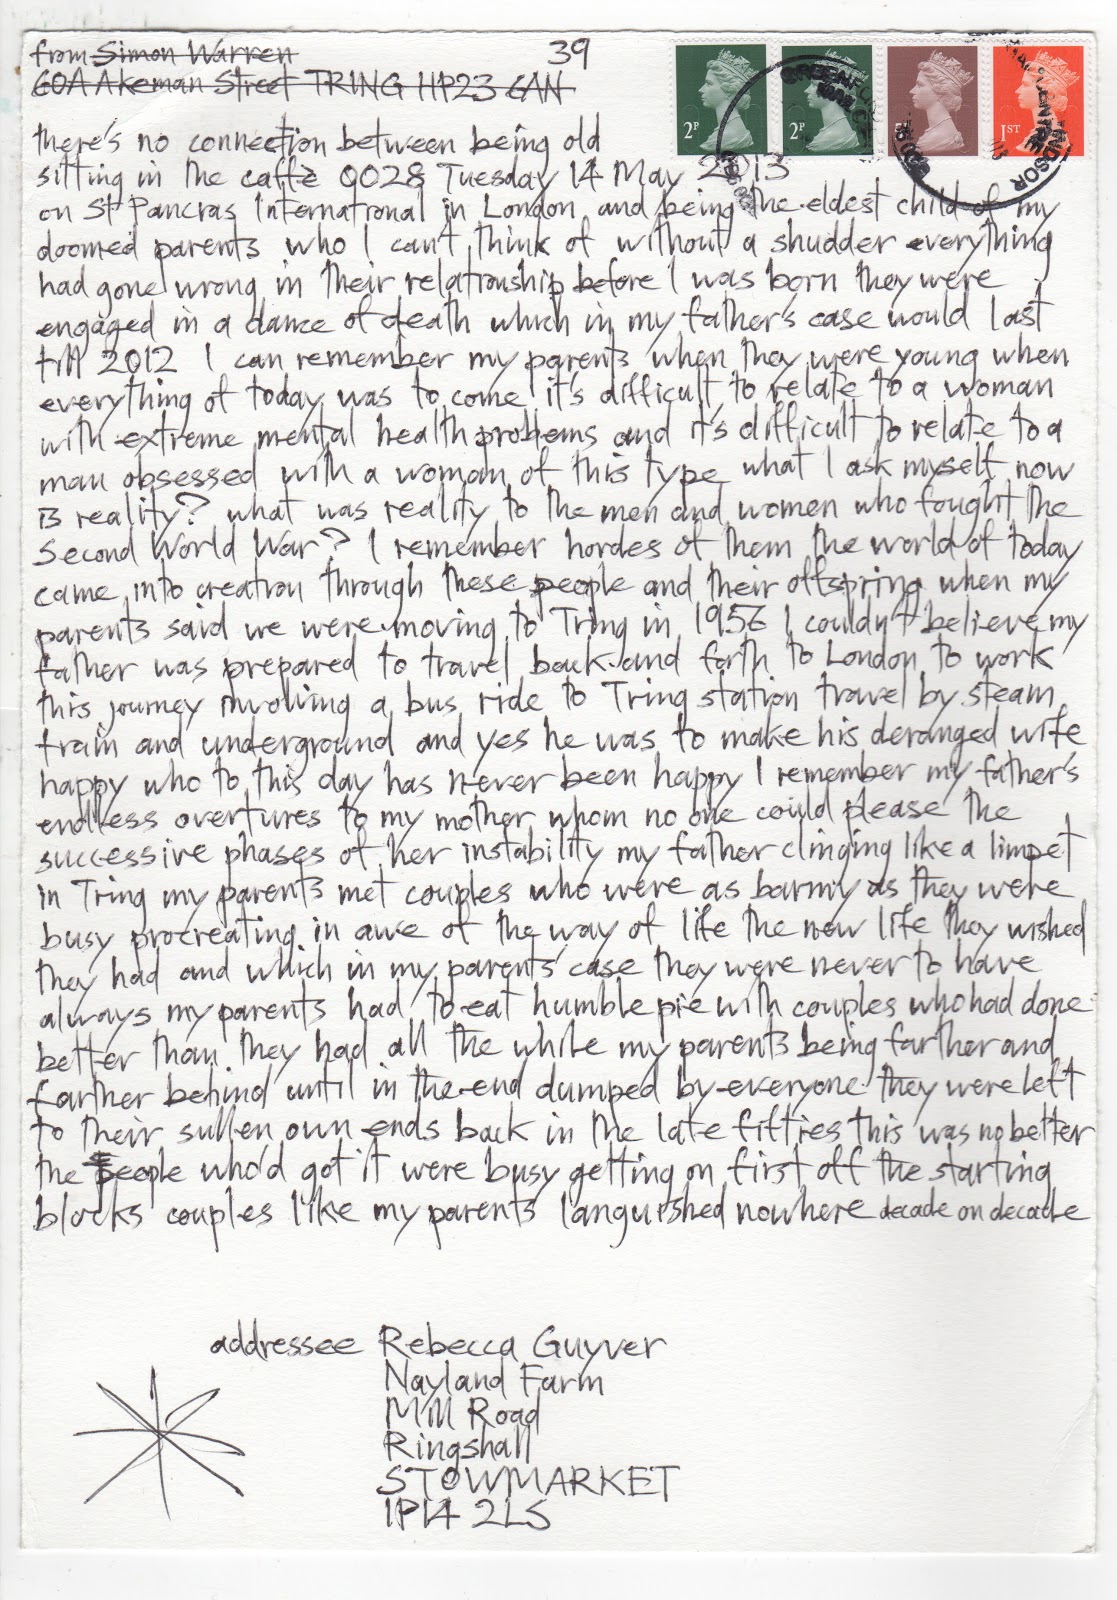 from Simon Warren
39
60A Akeman Street TRING HP23 6AN
2P
2P
1ST
there's no connection between being old
sitting in the caffè 0028 Tuesday 14 May 2013
on St Pancras International in London and being the eldest child of my
doomed parents who I can't think of without a shudder everything
had gone wrong in their relationship before I was born they were
engaged in a dance of death which in my father's case would last
till 2012 I can remember my parents when they were young when
everything of today was to come it's difficult to relate to a woman
with extreme mental health probems and it's difficult to relate to a
man obsessed with a woman of this type what I ask myself now
is reality? what was reality to the men and women who fought the
Second World War? I remember hordes of them the world of today
came into creation through these people and their offspring when my
parents said we were moving to Tring in 1956 I couldn't believe my
father was prepared to travel back and forth to London to work
this journey involving a bus ride to Tring station travel by steam
train and underground and yes he was to make his deranged wife
happy who to this day has never been happy I remember my father's
endless overtures to my mother whom no one could please the
successive phases of her instability my father clinging like a limpet
in Tring my parents met couples who were as barmy as they were
busy procreating in awe of the way of life the new life they wished
they had and which in my parents' case they were never to have
always my parents had to eat humble pie with couples who had done
better than they had all the while my parents being farther and
farther behind until in the end dumped by everyone they were left
to their sullen own ends back in the late fifties this was no better
the people who'd got it were busy getting on first off the starting
blocks couples like my parents languished nowhere decade on decade
addressee Rebecca Guyver
Nayland Farm
Mill Road
Ringshall
STOWMARKET
IP14 2LS